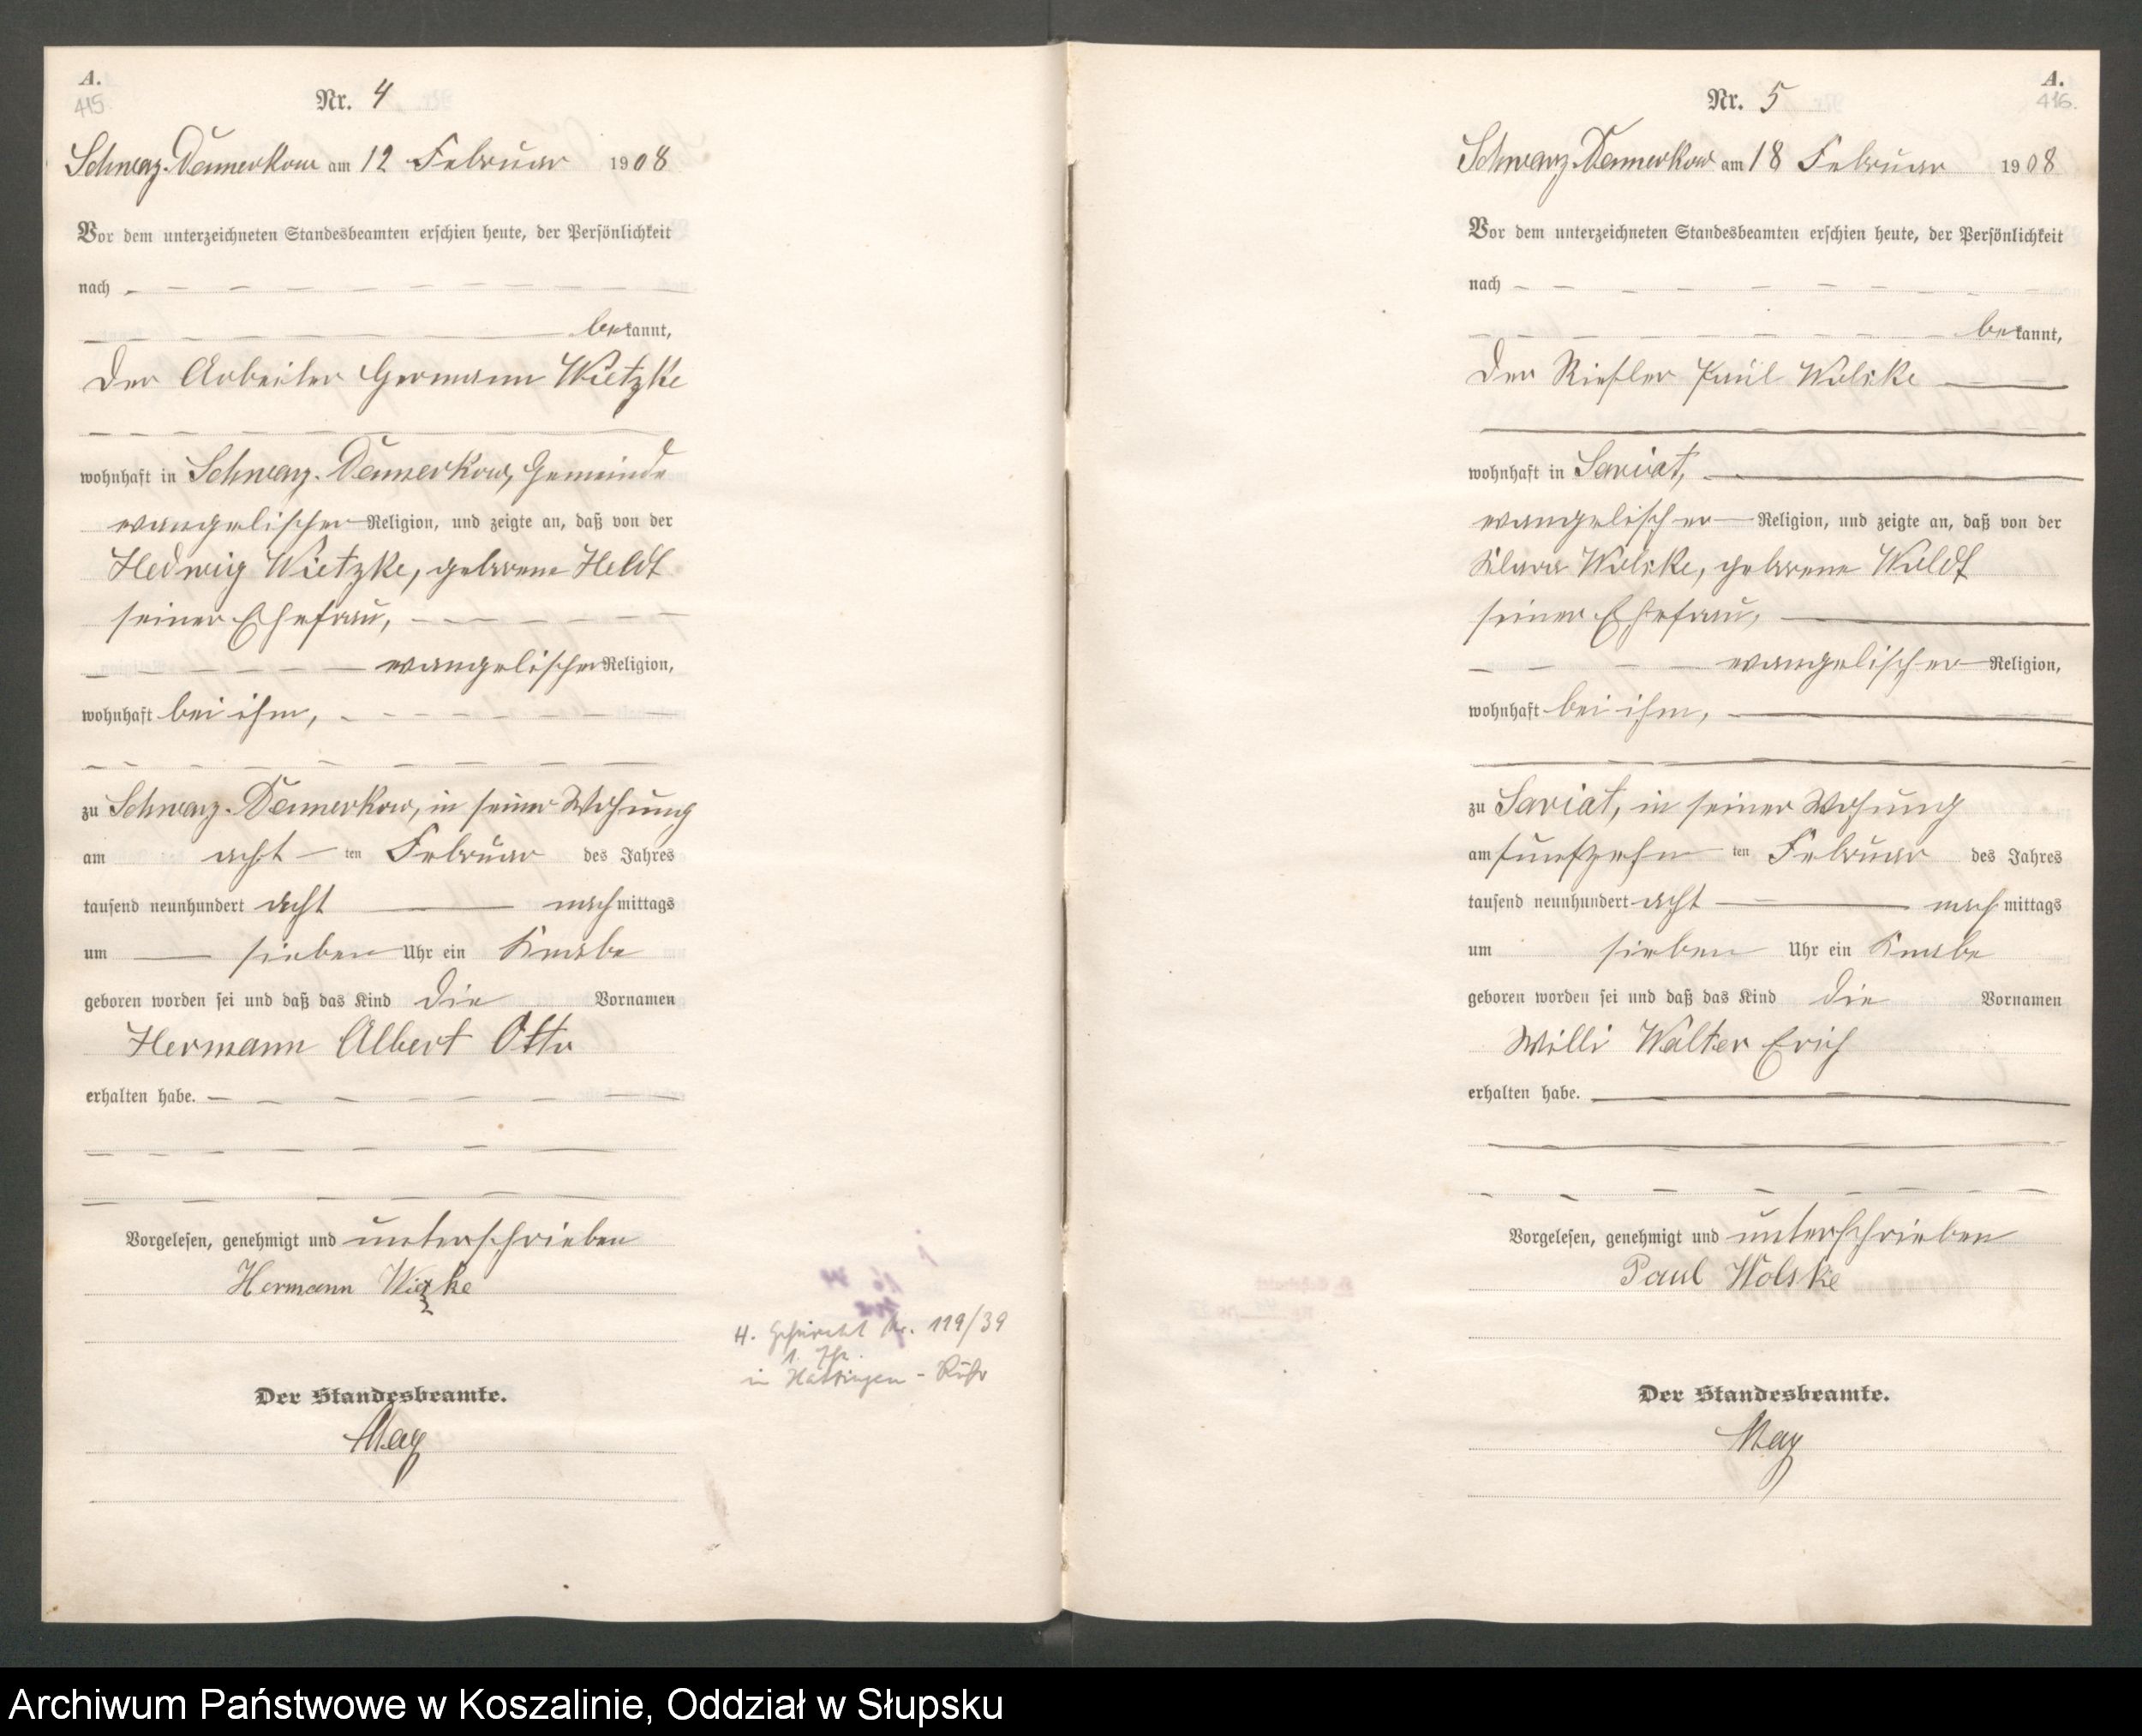 A.
415
Nr. 4
Schwarz-Damerkow am 12 Februar 1908
Vor dem unterzeichneten Standesbeamten erschien heute, der Persönlichkeit
nach
bekannt,
der Arbeiter Hermann Wietzke
wohnhaft in Schwarz-Damerkow, Gemeinde
evangelischer Religion, und zeigte an, daß von der
Hedwig Wietzke, geborene Heldt
seiner Ehefrau,
evangelischer Religion,
wohnhaft bei ihm,
zu Schwarz-Damerkow, in seiner Wohnung
am acht ten Februar des Jahres
tausend neunhundert acht nachmittags
um sieben Uhr ein Knabe
geboren worden sei und daß das Kind die Vornamen
Hermann Albert Otto
erhalten habe.
Vorgelesen, genehmigt und unterschrieben
Hermann
H. Geheiratet Nr. 119/39
in Hattingen - Ruhr
Der Standesbeamte.
May
A.
416.
Nr. 5
Schwarz-Damerkow am 18 Februar 1908
Vor dem unterzeichneten Standesbeamten erschien heute, der Persönlichkeit
nach
bekannt,
der Paul Wolske
wohnhaft in Saviat,
evangelischer Religion, und zeigte an, daß von der
Klara Wolske, geborene Woldt
seiner Ehefrau,
evangelischer Religion,
wohnhaft bei ihm,
zu Saviat, in seiner Wohnung
am fünfzehn ten Februar des Jahres
tausend neunhundert acht nachmittags
um sieben Uhr ein Knabe
geboren worden sei und daß das Kind die Vornamen
Willi Walter Erich
erhalten habe.
Vorgelesen, genehmigt und unterschrieben
Paul Wolske
Der Standesbeamte.
May
Archiwum Państwowe w Koszalinie, Oddział w Słupsku